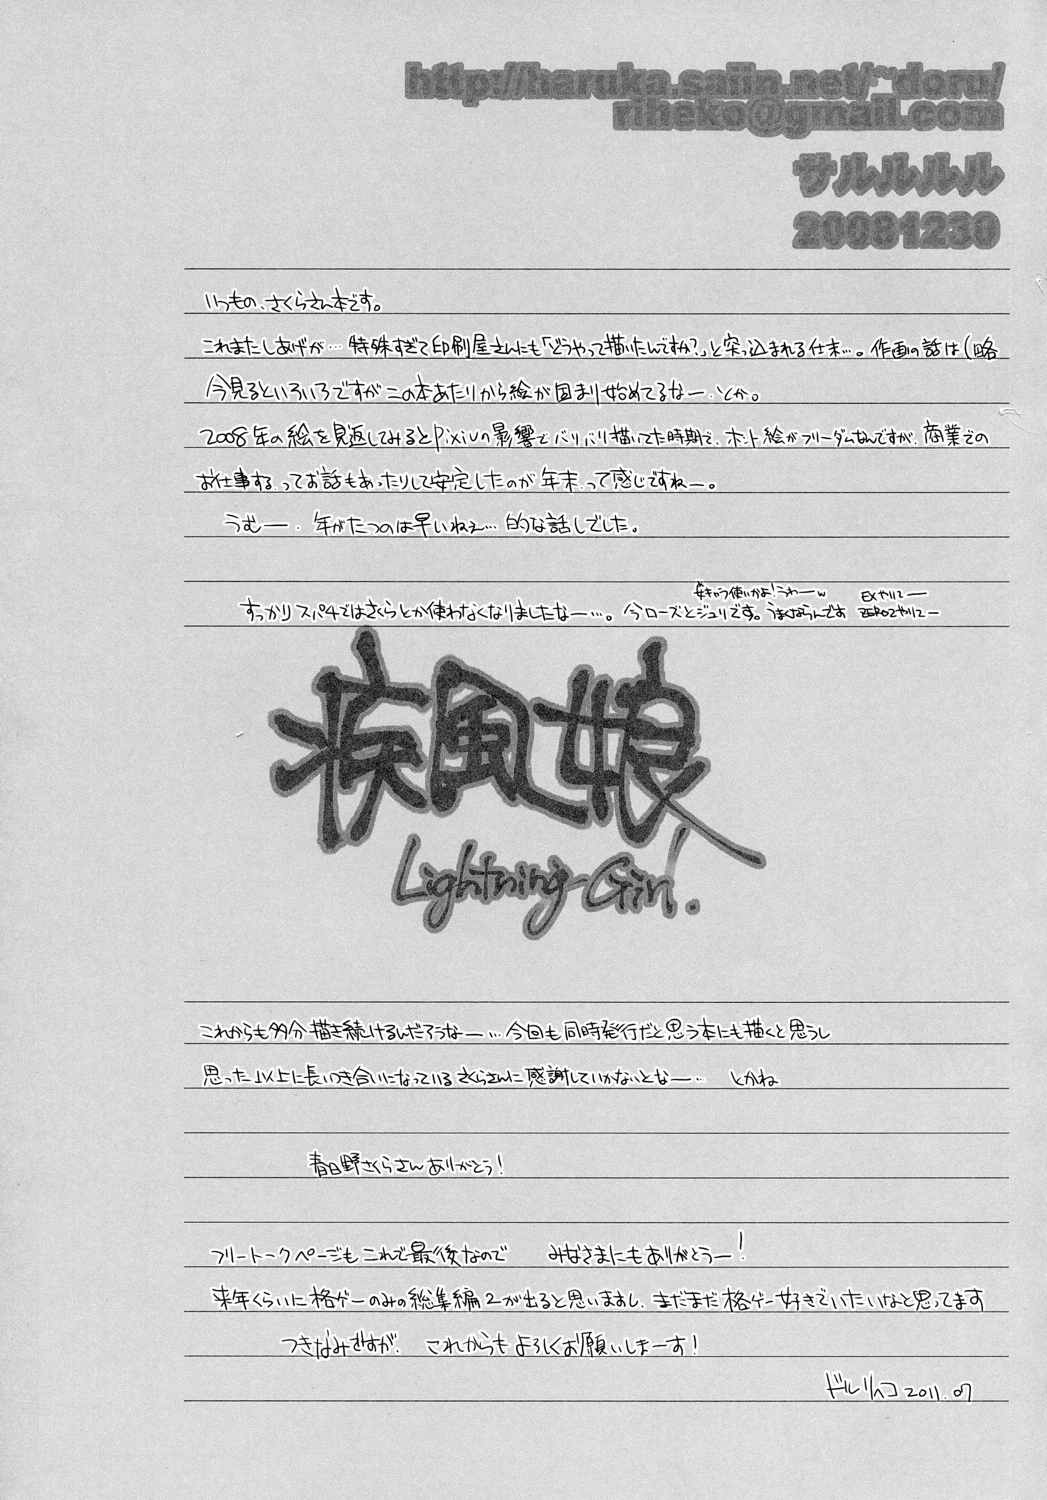 http://haruka.saiin.net/~doru/
riheko@gmail.com
サルルルル
20081230
いつもの、さくらさん本です。
これまたしあげが…特殊すぎて印刷屋さんにも「どうやって描いたんですか?」と突っ込まれる仕末…。作画の話は(略
今見るといろいろですがこの本あたりから絵が固まり始めてるなー、とか。
2008年の絵を見返してみるとPixivの影響でバリバリ描いてた時期で、ホント絵がフリーダムなんですが、商業での
お仕事する、ってお話もあったりして安定したのが年末、って感じですねー。
うむー、年がたつのは早いねえ…的な話しでした。
女キャラ使いかよ!こわーw
EXやりてー
すっかりスパ4ではさくらとか使わなくなりましたなー…。今ローズとジュリです。うまくならんです
ZERO2やりてー
疾風娘
Lightning-Girl!
これからも多分描き続けるんだろうなー…今回も同時発行だと思う本にも描くと思うし
思った以上に長いつき合いになっているさくらさんに感謝していかないとなー… とかね
春日野さくらさんありがとう!
フリートークページもこれで最後なので みなさまにもありがとうー!
来年くらいに格ゲーのみの総集編2が出ると思いますし、まだまだ格ゲー好きでいたいなと思ってます
つきなみですが、これからもよろしくお願いしまーす!
ドルリヘコ 2011.07